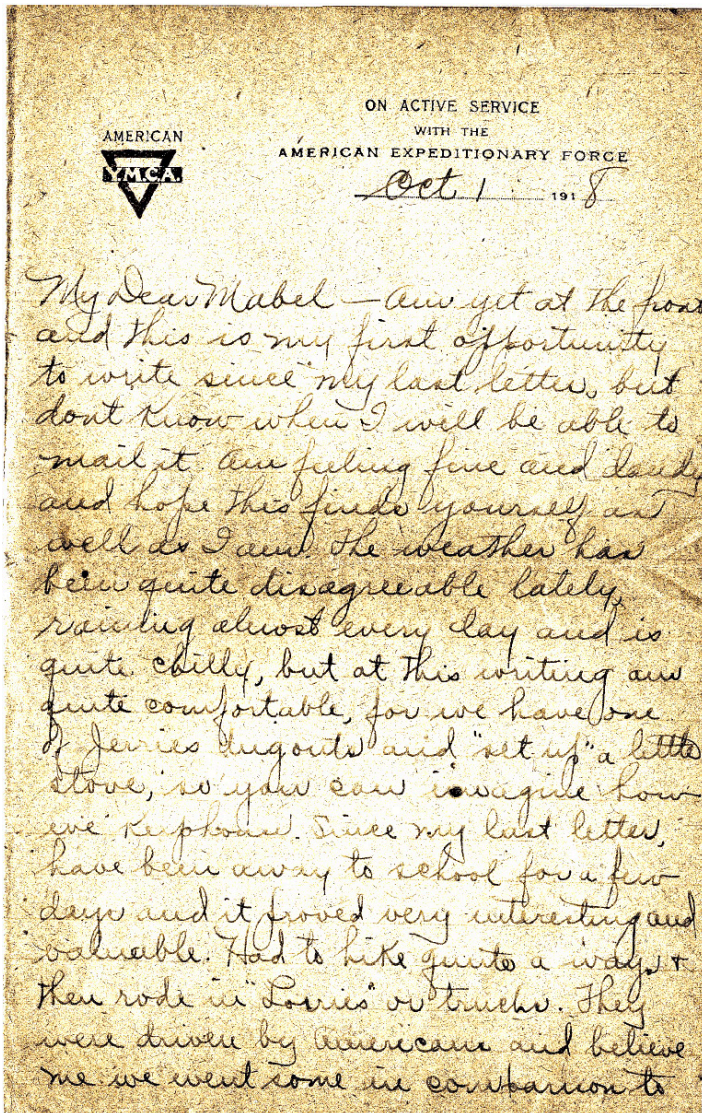 ON ACTIVE SERVICE
WITH THE
AMERICAN EXPEDITIONARY FORCE
AMERICAN
Y.M.C.A.
Oct 1 1918
My Dear Mabel – Am yet at the front
and this is my first opportunity
to write since my last letter, but
dont know when I will be able to
mail it. Am feeling fine and dandy
and hope this finds yourself as
well as I am. The weather has
been quite disagreeable lately,
raining almost every day and is
quite chilly, but at this writing am
quite comfortable, for we have one
of Jerries dugouts and "set up" a little
stove, so you can imagine how
we Keephouse. Since my last letter,
have been away to school for a few
days and it proved very interesting and
valuable. Had to hike quite a way, &
then rode in "Lorries" or trucks. They
were driven by Americans and believe
me we went some in comparison to